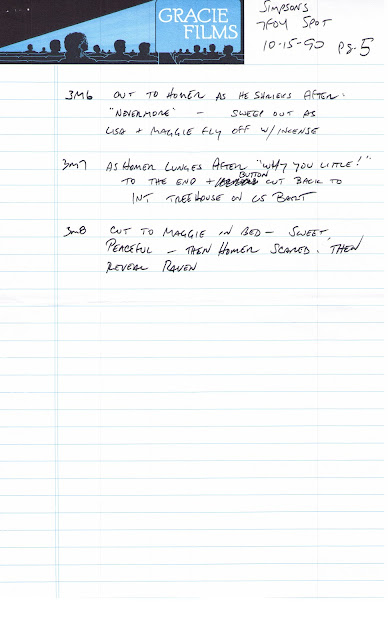 GRACIE
FILMS
SIMPSONS
7F04 SPOT
10-15-90 pg. 5
3M6 CUT TO HOMER AS HE SHRIEKS AFTER
"NEVERMORE" - SWEEP OUT AS
LISA + MAGGIE FLY OFF W/INCENSE
3M7 AS HOMER LUNGES AFTER "WHY YOU LITTLE!"
BUTTON
TO THE END + CUT BACK TO
INT TREEHOUSE ON CS BART
3M8 CUT TO MAGGIE IN BED - SWEET,
PEACEFUL - THEN HOMER SCARED. THEN
REVEAL RAVEN